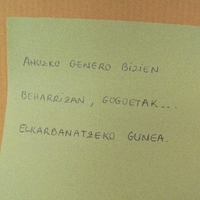 AHOZKO GENERO BIZIEN
BEHARRIZAN, GOGOETAK...
ELKARBANATZEKO GUNEA.